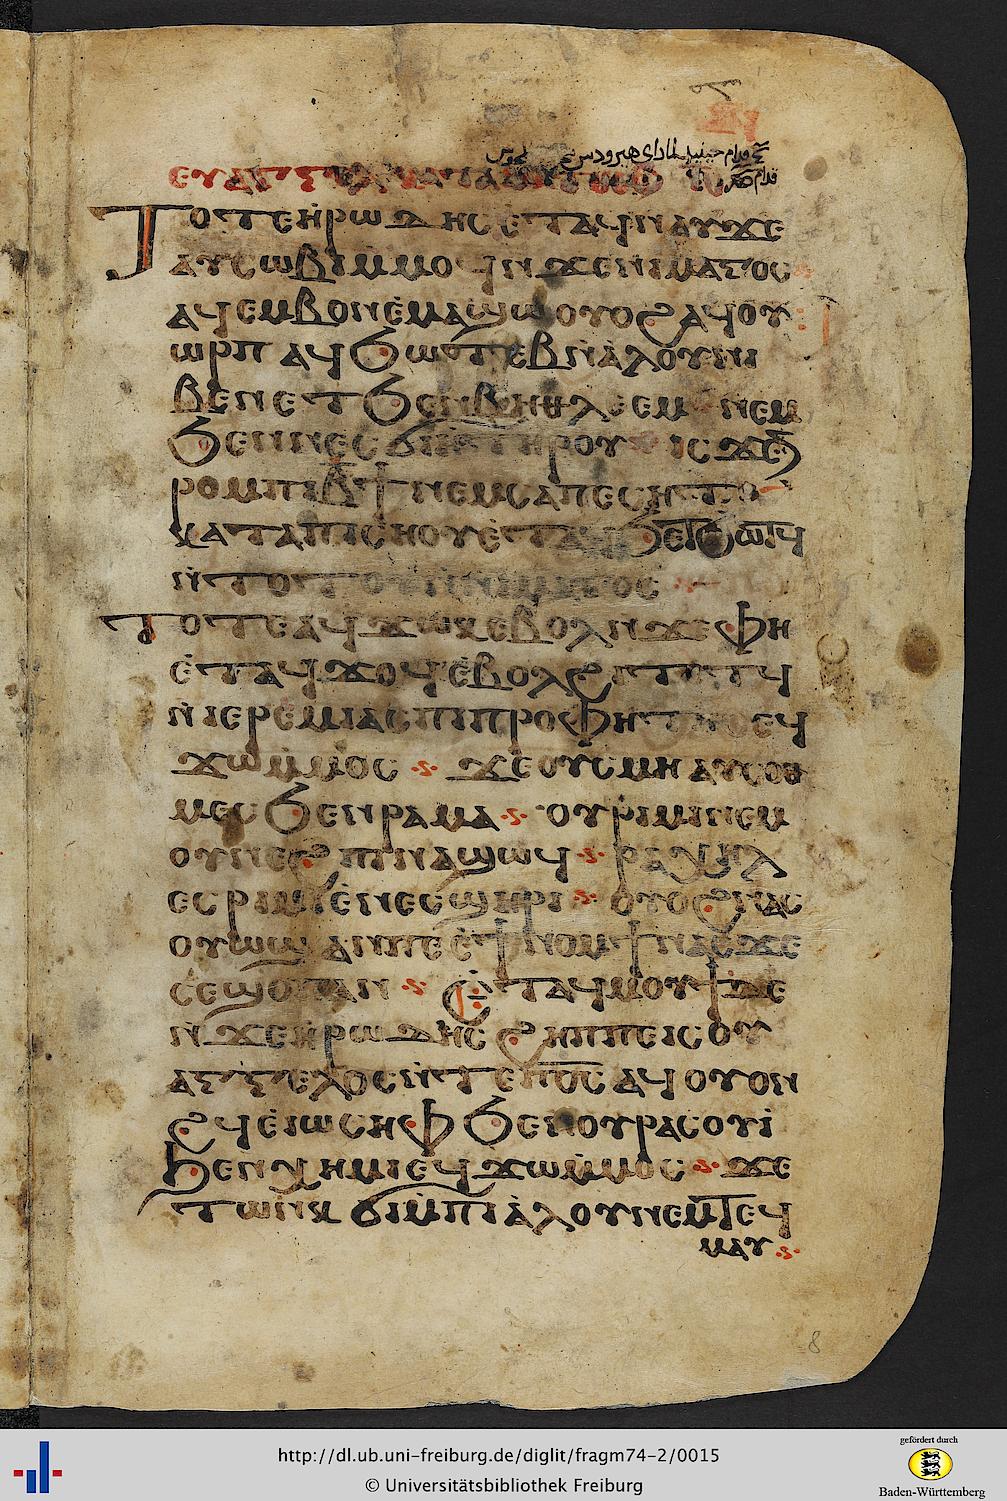 حينيذ لما راى هيرودس
ⲧⲟⲧⲉ ⲏⲣⲱⲇⲏⲥ ⲉⲧⲁϥⲛⲁⲩ ϫⲉ
ⲁⲩⲥⲱⲃⲓ ⲙⲙⲟϥ ⲛϫⲉ ⲛⲓⲙⲁⲅⲟⲥ
ⲁϥⲉⲙⲃⲟⲛ ⲉⲙⲁϣⲱ ⲟⲩⲟϩ ⲁϥⲟⲩ
ⲱⲣⲡ ⲁϥϧⲱⲧⲉⲃ ⲛⲁⲗⲟⲩ ⲛⲓ
ⲃⲉⲛ ⲉⲧϧⲉⲛ ⲃⲏⲑⲗⲉⲉⲙ ⲛⲉⲙ
ϧⲉⲛ ⲛⲉⲥϭⲓⲏ ⲧⲏⲣⲟⲩ ⲓⲥϫⲉⲛ
ⲣⲟⲙⲡⲓ ⲃϯ ⲛⲉⲙ ⲥⲁⲡⲉⲥⲏⲧ
ⲕⲁⲧⲁ ⲡⲓⲥⲏⲟⲩ ⲉⲧⲁϥϧⲉⲧϧⲱⲧϥ
ⲛⲧⲟⲧⲟⲩ ⲛⲛⲓⲙⲁⲅⲟⲥ
ⲧⲟⲧⲉ ⲁϥϫⲱⲕ ⲉⲃⲟⲗ ⲛϫⲉ ⲫⲏ
ⲉⲧⲁϥϫⲟϥ ⲉⲃⲟⲗϩⲓⲧⲟⲧϥ
ⲛⲓⲉⲣⲉⲙⲓⲁⲥ ⲡⲓⲡⲣⲟⲫⲏⲧⲏⲥ ⲉϥ
ϫⲱ ⲙⲙⲟⲥ ϫⲉ ⲟⲩⲥⲙⲏ ⲁⲩⲥⲟⲑ
ⲙⲉⲥ ϧⲉⲛ ⲣⲁⲙⲁ ⲟⲩⲣⲓⲙⲓ ⲛⲉⲙ
ⲟⲩⲛⲉϩⲡⲓ ⲛⲁϣⲱϥ ⲣⲁⲭⲏⲗ
ⲉⲥⲣⲓⲙⲓ ⲉⲛⲉⲥϣⲏⲣⲓ ⲟⲩⲟϩ ⲛⲁⲥ
ⲟⲩⲱϣ ⲁⲛ ⲡⲉ ⲉϯⲛⲟⲙϯ ⲛⲁⲥ ϫⲉ
ⲥⲉϣⲟⲡ ⲁⲛ ⲉⲧⲁϥⲙⲟⲩ ⲇⲉ
ⲛϫⲉ ⲏⲣⲱⲇⲏⲥ ϩⲏⲡⲡⲉ ⲓⲥ ⲟⲩ
ⲁⲅⲅⲉⲗⲟⲥ ⲛⲧⲉ ⲡⲟⲥ ⲁϥⲟⲩⲟⲛ
ϩϥ ⲉⲓⲱⲥⲏⲫ ϧⲉⲛ ⲟⲩⲣⲁⲥⲟⲩⲓ
ϧⲉⲛ ⲭⲏⲙⲓ ⲉϥϫⲱ ⲙⲙⲟⲥ ϫⲉ
ⲧⲱⲛⲕ ϭⲓ ⲙⲡⲓⲁⲗⲟⲩ ⲛⲉⲙ ⲧⲉϥ
ⲙⲁⲩ
8
http://dl.ub.uni-freiburg.de/diglit/fragm74-2/0015
© Universitätsbibliothek Freiburg
gefördert durch
Baden-Württemberg